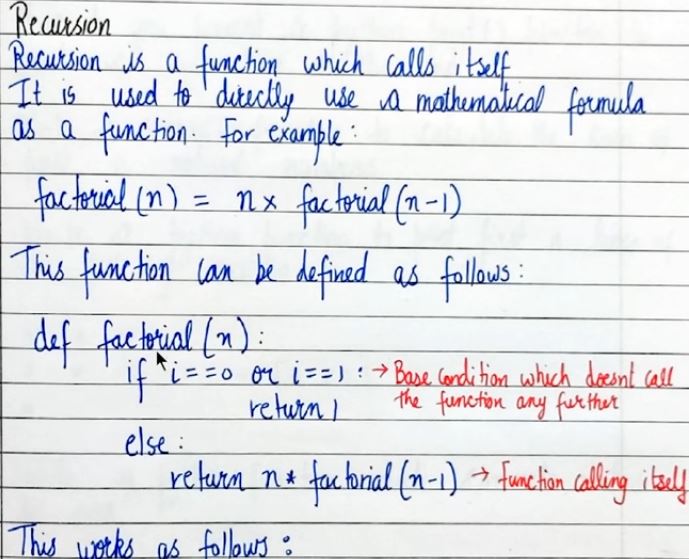 Recursion
Recursion is a function which calls itself
It is used to directly use a mathematical formula
as a function. For example:
factorial (n) = n × factorial (n-1)
This function can be defined as follows:
def factorial (n):
if i==0 or i==1 : → Base Condition which doesnt call
the function any further
return 1
else :
return n * factorial (n-1) → function calling itself
This works as follows :